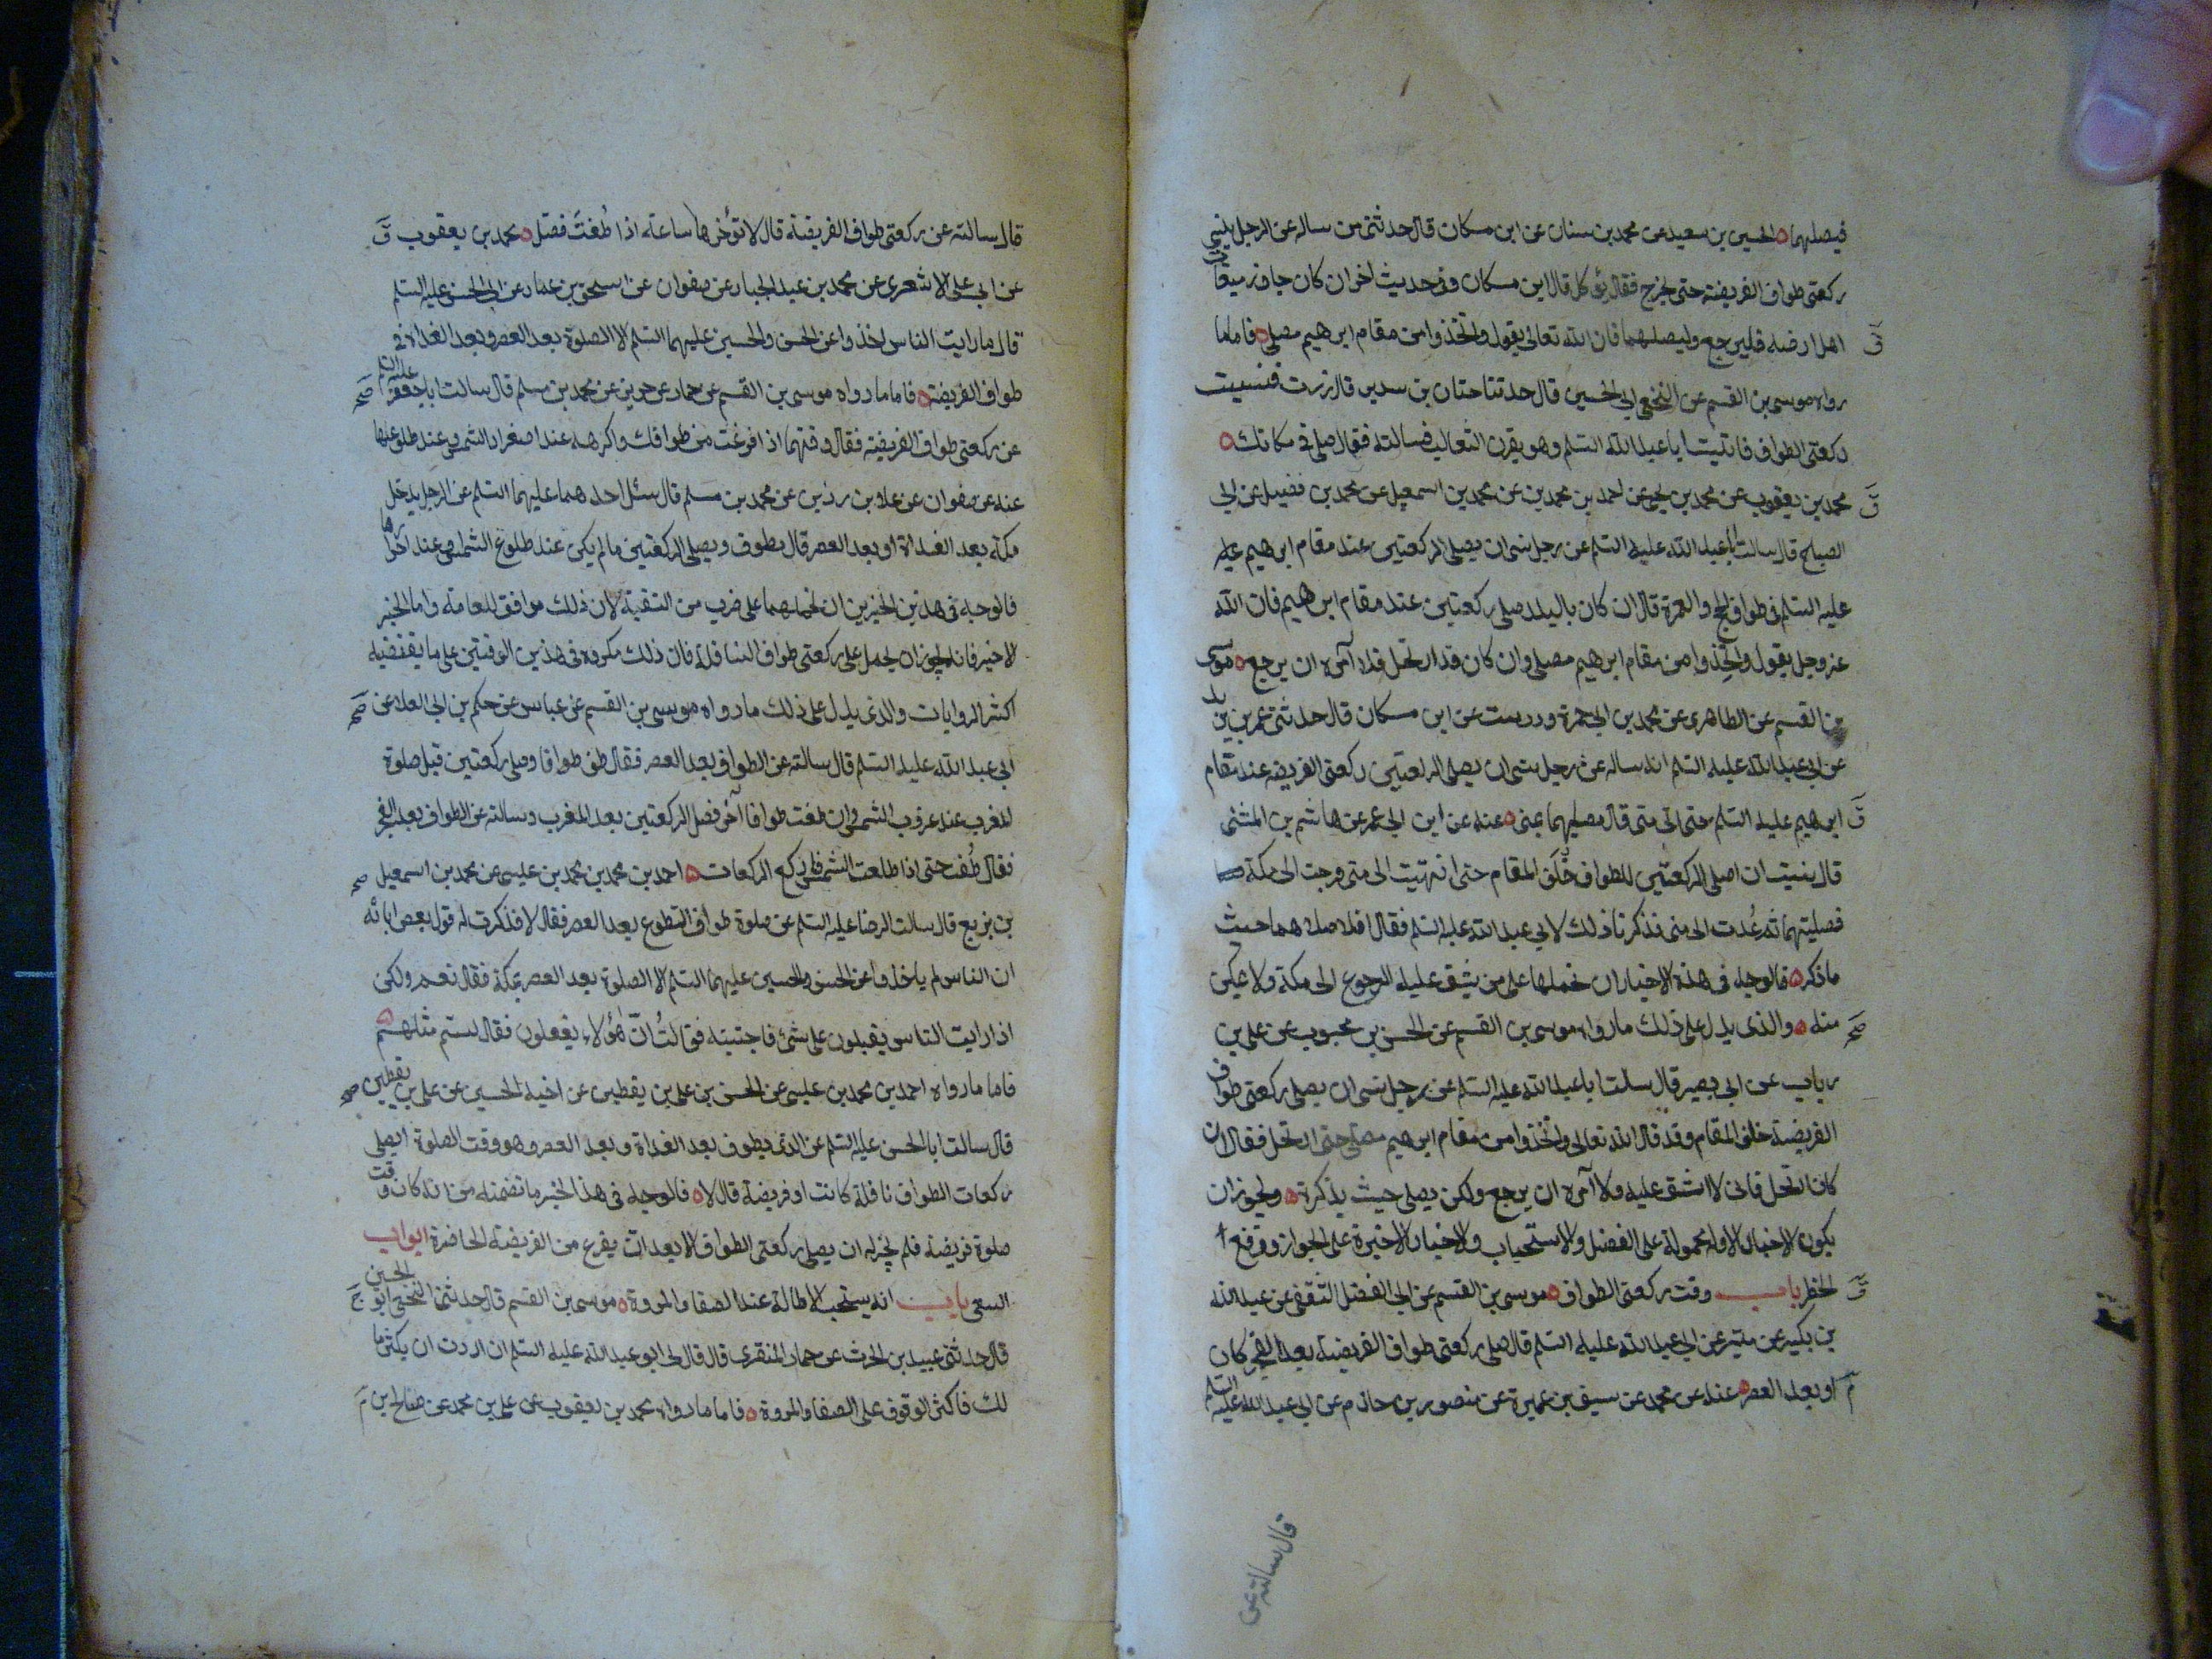 فيصليهما الحسين بن سعيد عن محمد بن سنان عن ابن مسكان قال حدثنى من ساله عن الرجل ينسى
ركعتى طواف الفريضة حتى يخرج فقال يوكل قال ابن مسكان وفى حديث اخر ان كان جاوز ميقات
اهل ارضه فليرجع وليصليهما فان الله تعالى يقول واتخذوا من مقام ابرهيم مصلى فاما ما
رواه موسى بن القسم عن النخعى ابى الحسين قال حدثنا حنان بن سدير قال زرت فنسيت
ركعتى الطواف فاتيت ابا عبد الله السلم وهو بقرن الثعالب فسالته فقال صل فى مكانك
محمد بن يعقوب عن محمد بن يحيى عن احمد بن محمد بن عن محمد بن اسمعيل عن محمد بن فضيل عن ابى
الصباح قال سالت ابا عبد الله عليه السلم عن رجل نسى ان يصلى الركعتين عند مقام ابرهيم عليه
عليه السلم فى طواف الحج والعمرة قال ان كان بالبلد صلى ركعتين عند مقام ابرهيم فان الله
عز وجل يقول واتخذوا من مقام ابرهيم مصلى وان كان قد ارتحل فلا آمره ان يرجع موسى
بن القسم عن الطاهرى عن محمد بن ابى حمزة ودرست عن ابن مسكان قال حدثنى عمر بن يزيد
عن ابى عبد الله عليه السلم انه ساله عن رجل نسى ان يصلى الركعتين ركعتى الفريضه عند مقام
ابرهيم عليه السلم حتى اتى منى قال يصليهما بمنى عنه عن ابن ابى عمير عن هاشم بن المثنى
قال نسيت ان اصلى الركعتين للطواف خلف المقام حتى انتهيت الى منى فرجعت الى مكة
فصليتهما ثم عدت الى منى فذكرنا ذلك لابى عبد الله عليه السلم فقال افلا صلاهما حيث
ما ذكر فالوجه فى هذه الاخبار ان نحملها على من يشق عليه الرجوع الى مكة ولا يمكن
منه والذى يدل على ذلك ما رواه موسى بن القسم عن الحسن بن محبوب عن على بن
رياب عن ابى بصير قال سالت ابا عبد الله عليه السلم عن رجل نسى ان يصلى ركعتى طواف
الفريضة خلف المقام وقد قال الله تعالى واتخذوا من مقام ابرهيم مصلى حتى ارتحل فقال ان
كان ارتحل فانى لا اشق عليه ولا آمره ان يرجع ولكن يصلى حيث يذكره ويجوز ان
يكون الاخبار الاوله محمولة على الفضل والاستحباب والاخبار الاخيرة على الجواز ورفع
الحظر باب وقت ركعتى الطواف موسى بن القسم عن ابى الفضل الثقفى عن عبد الله
بن بكير عن ميسر عن ابى عبد الله عليه السلم قال صل ركعتى طواف الفريضة بعد الفجر كان
او بعد العصر عنه عن محمد عن سيف بن عميرة عن منصور بن حازم عن ابى عبد الله عليه السلم
قال سالته عن
قال سالته عن ركعتى طواف الفريضة قال لا تؤخرها ساعة اذا طفت فصل محمد بن يعقوب
عن ابى على الاشعرى عن محمد بن عبد الجبار عن صفوان عن اسحق بن عمار عن ابى الحسن عليه السلم
قال ما رايت الناس اخذوا عن الحسن والحسين عليهما السلم الا الصلوة بعد العصر وبعد الغداة فى
طواف الفريضة فاما ما رواه موسى بن القسم عن حماد عن حريز عن محمد بن مسلم قال سالت ابا جعفر عليه السلم
عن ركعتى طواف الفريضة فقال وقتهما اذا فرغت من طوافك واكرهه عند اصفرار الشمس وعند طلوعها
عنه عن صفوان عن علا بن رزين عن محمد بن مسلم قال سئل احدهما عليهما السلم عن الرجل يدخل
مكة بعد الغداة او بعد العصر قال يطوف ويصلى الركعتين ما لم يكن عند طلوع الشمس وعند احمرارها
فالوجه فى هذين الخبرين ان نحملهما على ضرب من التقية لان ذلك موافق للعامة واما الخبر
الاخير فانه يجوز ان يحمل على ركعتى طواف النافلة فان ذلك مكروه فى هذين الوقتين على ما يقتضيه
اكثر الروايات والذى يدل على ذلك ما رواه موسى بن القسم عن عباس عن حكم بن ابى العلا عن
ابى عبد الله عليه السلم قال سالته عن الطواف بعد العصر فقال طف طوافا وصل ركعتين قبل صلوة
المغرب عند غروب الشمس وان طفت طوافا آخر فصل الركعتين بعد المغرب وسالته عن الطواف بعد الفجر
فقال طف حتى اذا طلعت الشمس فاركع الركعات احمد بن محمد بن محمد بن عيسى عن محمد بن اسمعيل
بن بزيع قال سالت الرضا عليه السلم عن صلوة طواف التطوع بعد العصر فقال لا فذكرت له قول بعض ابائه
ان الناس لم ياخذوا عن الحسن والحسين عليهما السلم الا الصلوة بعد العصر بمكة فقال نعم ولكن
اذا رايت الناس يقبلون على شئ فاجتنبه فقلت ان هؤلاء يفعلون فقال لستم مثلهم
فاما ما رواه احمد بن محمد بن عيسى عن الحسن بن على بن يقطين عن اخيه الحسين عن على بن يقطين
قال سالت ابا الحسن عليه السلم عن الذى يطوف بعد الغداة وبعد العصر وهو وقت الصلوة ايصلى
ركعات الطواف نافلة كانت او فريضة قال لا فالوجه فى هذا الخبر ما تضمنه من انه كان وقت
صلوة فريضة فلم يجز له ان يصلى ركعتى الطواف الا بعد ان يفرغ من الفريضة الحاضرة ابواب
السعى باب انه يستحب الاطالة عند الصفا والمروة موسى بن القسم قال حدثنا النخعى ابو الحسين
قال حدثنى عبيد بن الحرث عن حماد المنقرى قال قال لى ابو عبد الله عليه السلم ان اردت ان يكثر ما
لك فاكثر الوقوف على الصفا والمروة فاما ما رواه محمد بن يعقوب عن على بن محمد عن صالح ابن